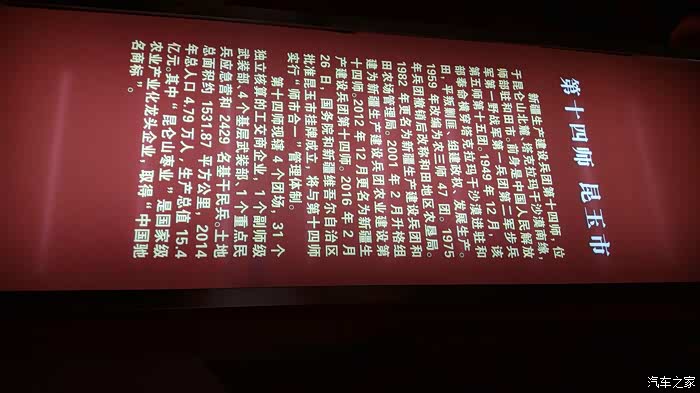 第十四师 昆玉市
新疆生产建设兵团第十四师,位
于昆仑山北麓,塔克拉玛干沙漠南缘,
师部驻和田市。前身是中国人民解放
军第一野战军第一兵团第二军步兵
第五师第十五团,1949 年 12 月,该
部奉命横穿塔克拉玛干沙漠进驻和
田,平叛剿匪、组建政权、发展生产。
1959 年改编为农三师 47 团。1975
年兵团撤销后改制和田地区农垦局。
1982 年更名为新疆生产建设兵团和
田农场管理局。2001 年 2 月升格组
建为新疆生产建设兵团农业建设第
十四师。2012 年 12 月更名为新疆生
产建设兵团第十四师。2016 年 2 月
26 日,国务院和新疆维吾尔自治区
批准昆玉市挂牌成立,将与第十四师
实行“师市合一”管理体制。
第十四师现辖 4 个团场,31 个
独立核算的工交商企业,1 个副师级
武装部,4 个基层武装部,1 个重点民
兵应急营和 2429 名基干民兵。土地
总面积约 1531.87 平方公里,2014
年总人口 4.79 万人,生产总值 15.4
亿元。其中“昆仑山枣业”是国家级
农业产业化龙头企业,取得“中国驰
名商标”。
汽车之家